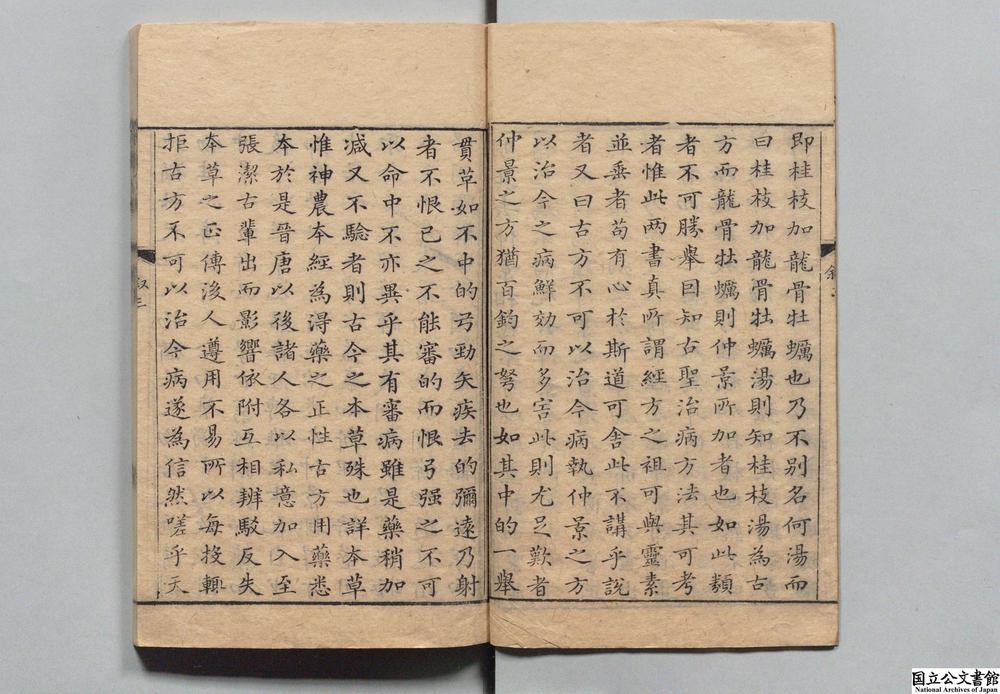 即桂枝加龍骨牡蠣也乃不别名何湯而
曰桂枝加龍骨牡蠣湯則知桂枝湯為古
方而龍骨牡蠣則仲景所加者也如此類
者不可勝舉曰知古聖治病方法其可考
者惟此两書真所謂經方之祖可與靈素
並垂者苟有心於斯道可舍此不講乎說
者又曰古方不可以治今病執仲景之方
以治今之病鮮効而多害此則尤足歎者
仲景之方猶百鈞之弩也如其中的一舉
貫革如不中的弓勁矢疾去的彌遠乃射
者不恨已之不能審的而恨弓强之不可
以命中不亦異乎其有審病雖是藥稍加
減又不驗者則古今之本草殊也詳本草
惟神農本經為得藥之正性古方用藥悉
本於是晉唐以後諸人各以私意加入至
張潔古輩出而影響依附互相辨駁反失
本草之正傳後人遵用不易所以每投輒
拒古方不可以治今病遂為信然嗟乎天
叙三
国立公文書館
National Archives of Japan